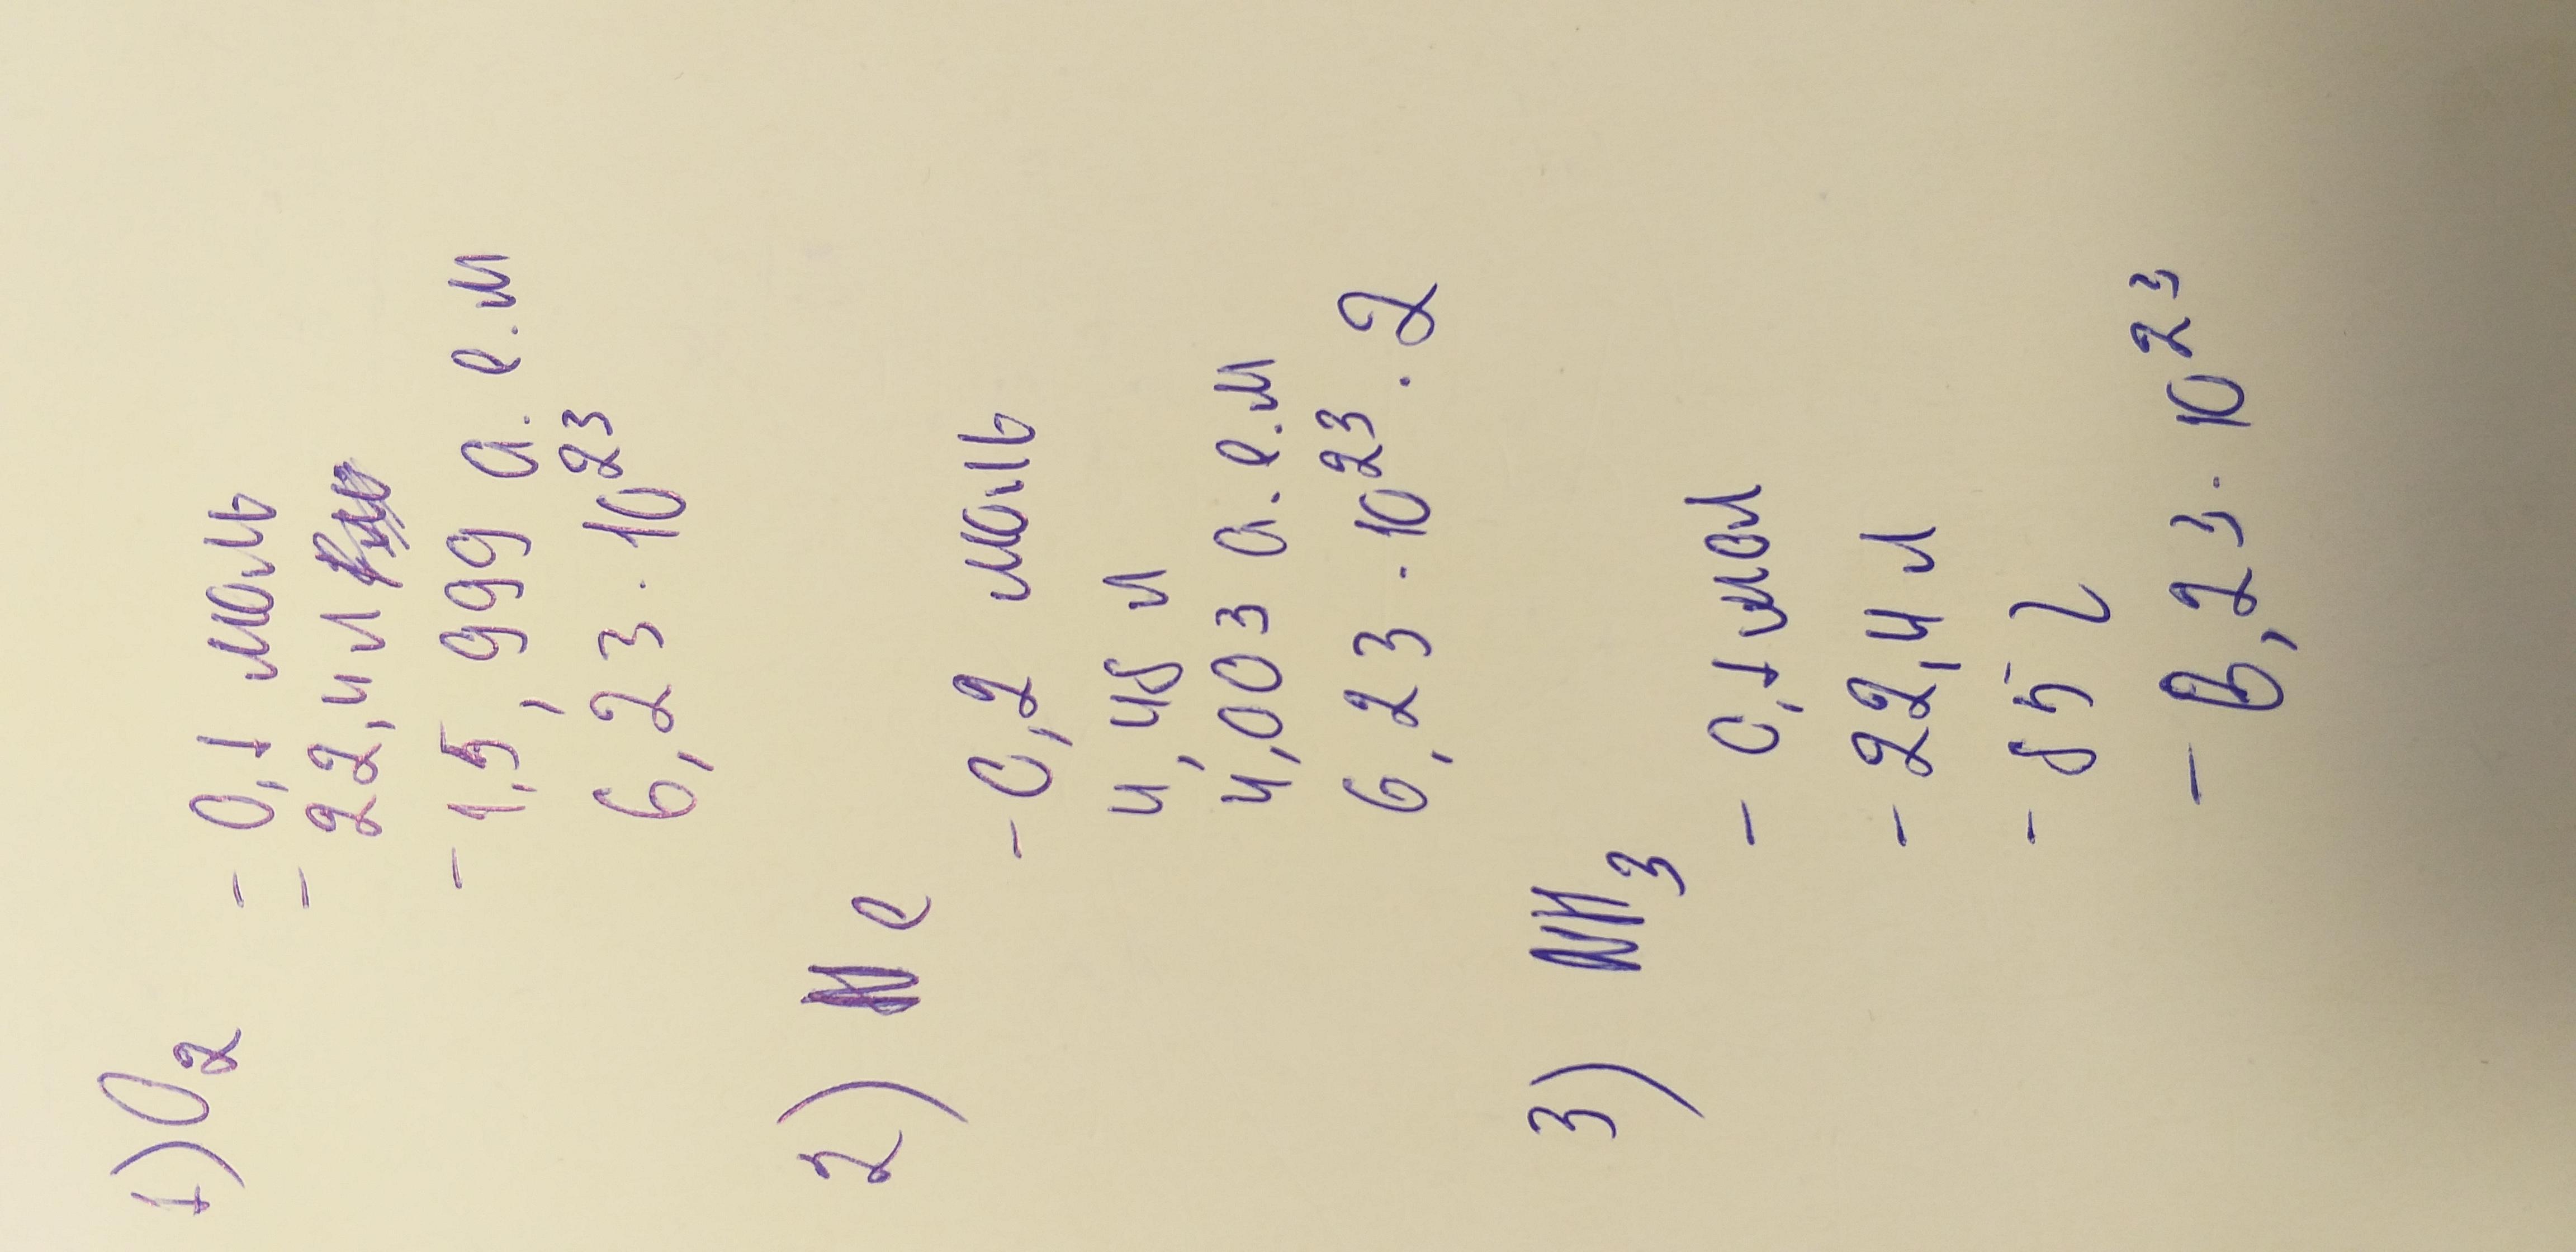 1) O2
- 0,1 моль
- 22,4 л
- 15,999 а.е.м
6,23 · 10^23
2) Не
- 0,2 моль
4,48 л
4,003 а.е.м
6,23 · 10^23 · 2
3) NH3
- 0,1 мол
- 22,4 л
- 85 г
- 6,23 · 10^23